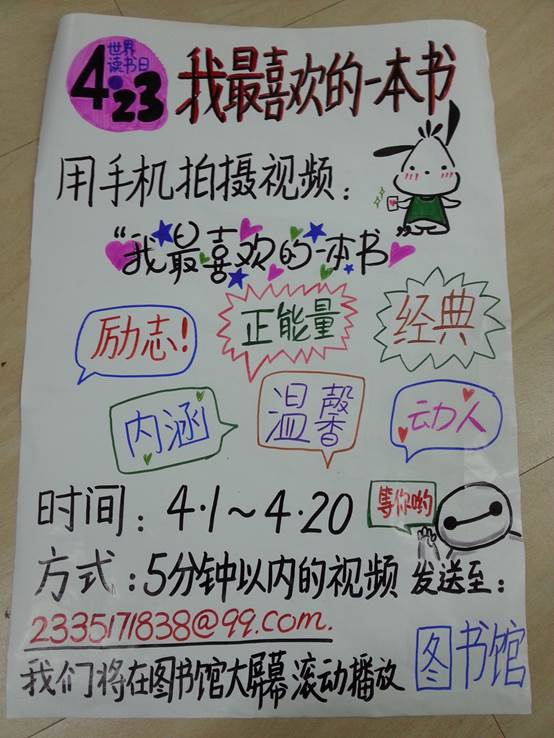 世界
读书日
4·23
我最喜欢的一本书
用手机拍摄视频：
“我最喜欢的一本书”
励志！
正能量
经典
内涵
温馨
动人
时间：4·1～4·20
等你哟
方式：5分钟以内的视频 发送至：
2335171838@qq.com.
我们将在图书馆大屏幕滚动播放
图书馆